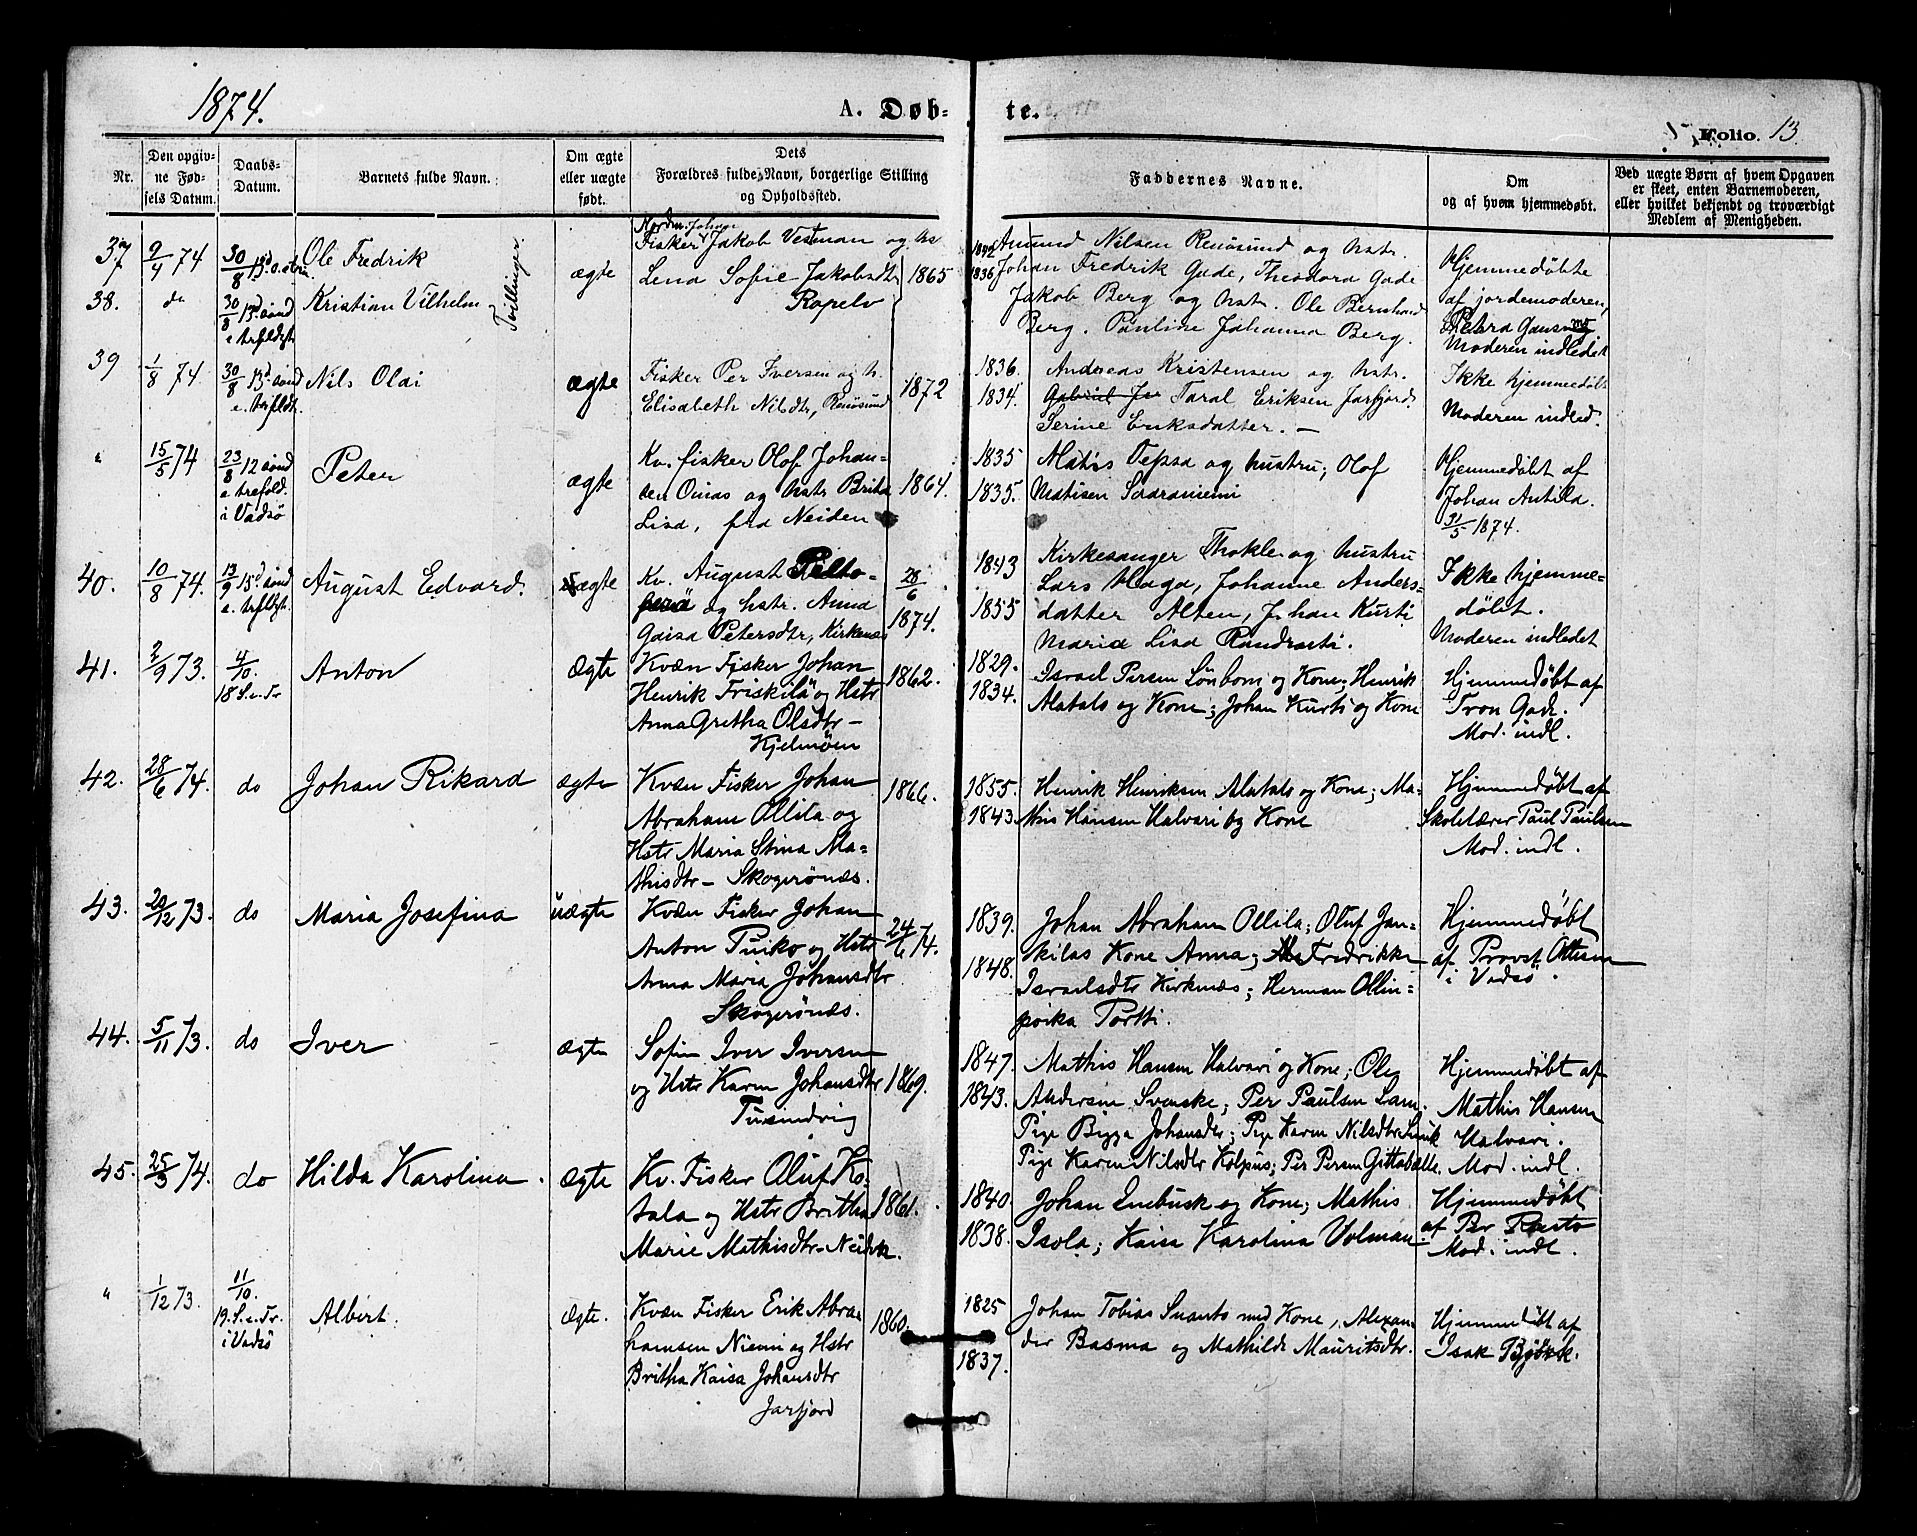 1874.
A. Døb-
te.
Folio. 13.
Nr.
Den opgiv-
ne Fød-
sels Datum.
Daabs-
Datum.
Barnets fulde Navn.
Om ægte
eller uægte
født.
Dets
Forældres fulde Navn, borgerlige Stilling
og Opholdssted.
Faddernes Navne.
Om
og af hvem hjemmedøbt.
Ved uægte Børn af hvem Opgaven
er skeet, enten Barnemoderen,
eller hvilket bekjendt og troværdigt
Medlem af Menigheden.
37
9/4 74
30/8 13d
Ole Fredrik
Tvillinger
ægte
Nordm. Johan
Fisker Jakob Vestman og hs
Lena Sofie Jakobsdtr
Ropelv
1865
1842
1836
Amund Nilsen Renøsund og hstr.
Johan Fredrik Gade, Theodora Gade
Jakob Berg og hst. Ole Bernhard
Berg. Pauline Johanna Berg.
Hjemmedøbte
af jordemoderen,
Petra
Moderen indledet
38.
do
30/8 13d sönd
e trfldgt.
Kristian Vilhelm
39
1/8 74.
30/8 13d sönd
e. trfldt.
Nils Olai
ægte
Fisker Per Iversen og h.
Elisabeth Nilsdtr, Renøsund
1872
1836.
1834.
Andreas Kristensen og hstr.
Taral Eriksen Jarfjord.
Serine Eriksdatter. —
Ikke hjemmedøbt
Moderen indled.
"
15/5 74
23/8 12 sönd
e trefold.
i Vadsø
Peter
ægte
Kv. fisker Olof Johan-
sen Oinas og hstr Brita
Lisa, fra Neiden
1864.
1835
1835.
Matis Tepsa og hustru; Olof
Matisen Saaraniemi
Hjemmedøbt af
Johan Antila.
31/5 1874.
40.
10/8 74.
13/9 15d sönd
e. trfldgt.
August Edvard.
ægte
Kv. August Pelto-
og hstr. Anna
Gaisa Petersdtr, Kirkenæs
28/6
1874.
1843
1855
Kirkesanger Thokle og hustru
Lars Haga, Johanne Anders-
datter Alten, Johan Kurti
Maria Lisa
Ikke hjemme-
døbt.
Moderen indledet
41.
2/9 73.
4/10.
18 S. e. Tr
Anton
Ægte
Kvæn Fisker Johan
Henrik Friskilä og Hstr
Anna Gretha Olsdtr –
Kjelmøen
1862.
1829.
1834.
Israel Persen Lönbom og Kone; Henrik
Alatalo og Kone; Johan Kurti og Kone
Hjemmedøbt af
Tron Gade.
Mod. indl.
42.
28/6 74.
do
Johan Rikard
ægte
Kvæn Fisker Johan
Abraham Ollila og
Hstr Maria Stina Ma-
thisdtr – Skogerønæs.
1866.
1855.
1843
Henrik Henriksen Alatalo og Kone; Ma-
this Hansen Halvari og Kone
Hjemmedøbt af
Skolelærer Paul Paulsen
Mod. indl.
43.
29/12 73.
do
Maria Josefina
uægte
Kvæn Fisker Johan
Anton Puiko og Hstr
Anna Maria Johansdtr
Skogerønæs.
24/6 74.
1839.
1848.
Johan Abraham Ollila; Oluf Jan-
kilas Kone Anna; Fredrikke
Israelsdtr Kirknæs; Herman Ollin-
poika Portti.
Hjemmedøbt
af Provst Ottesen
i Vadsö.
44.
5/11 73.
do
Iver
ægte
Sofin Iver Iversen
og Hstr Karen Johansdtr
1869.
1847.
1843.
Mathis Hansen Halvari og Kone; Ole
Andersen Svenske; Per Paulsen Lam.
Pige Bigga Johansdtr; Pige Karen Nilsdtr
Pige Karen Nilsdtr Kolpus; Per Persen
Hjemmedøbt af
Mathis Hansen
Halvari.
Mod. indl.
45.
25/3 74.
do
Hilda Karolina.
Ægte
Kv. Fisker Oluf Ko-
tala og Hstr Britha
Marie Mathisdtr – Neiden.
1861.
1840
1838.
Johan Enebusk og Kone; Mathis
Isola; Kaisa Karolina Volman
Hjemmedøbt
af Per
Mod. indl.
"
1/12 73.
11/10.
19. S. e. Tr.
i Vadsø
Albert.
Ægte.
Kvæn Fisker Erik Abra-
hamsen Niemi og Hstr
Britha Kaisa Johansdtr
Jarfjord
1860.
1825
1837.
Johan Tobias Suanto med Kone, Alexan-
der Basma og Mathilde Mauritsdtr.
Hjemmedøbt af
Isak Björk.